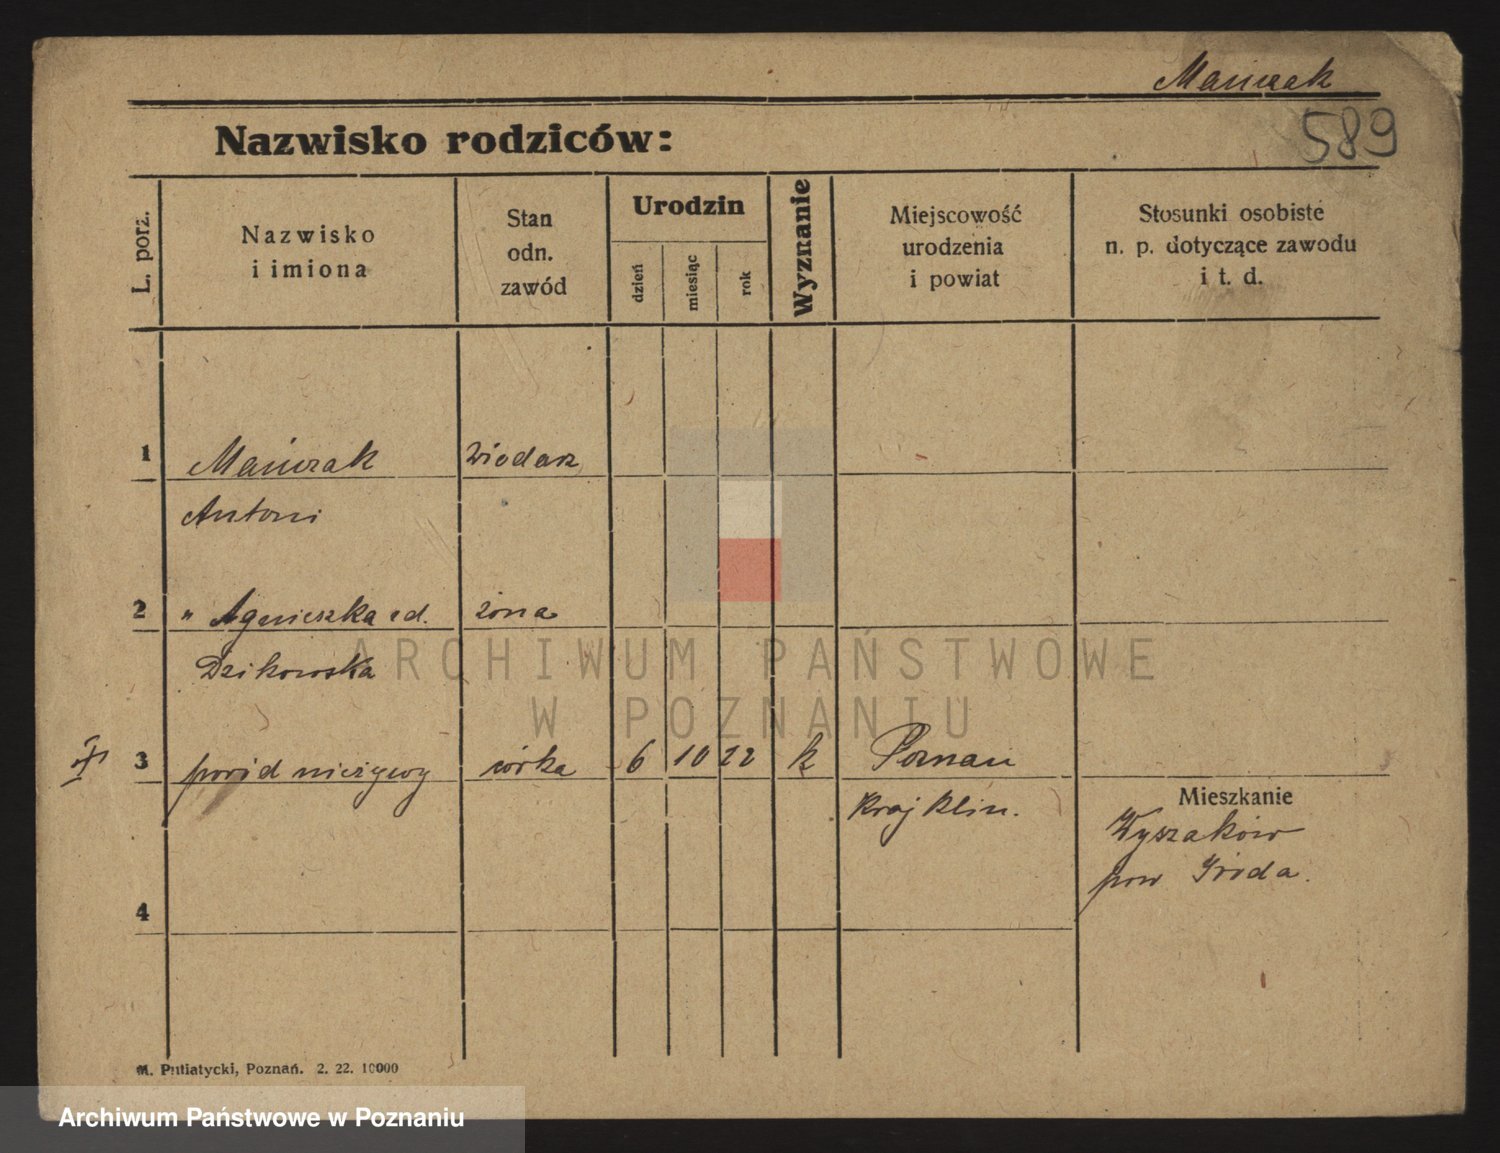 Mańczak
589
Nazwisko rodziców:
L. porz.
Nazwisko
i imiona
Stan
odn.
zawód
Urodzin
dzień
miesiąc
rok
Wyznanie
Miejscowość
urodzenia
i powiat
Stosunki osobiste
n. p. dotyczące zawodu
i t. d.
1 Mańczak
Antoni
2 " Agnieszka
żona
Dzikowska
ARCHIWUM PAŃSTWOWE
W POZNANIU
3 poród nieżywy córka 6 10 22 k Poznań
Kraj Klin.
Mieszkanie
pow Środa.
4
M. Putiatycki, Poznań. 2. 22. 10000
Archiwum Państwowe w Poznaniu